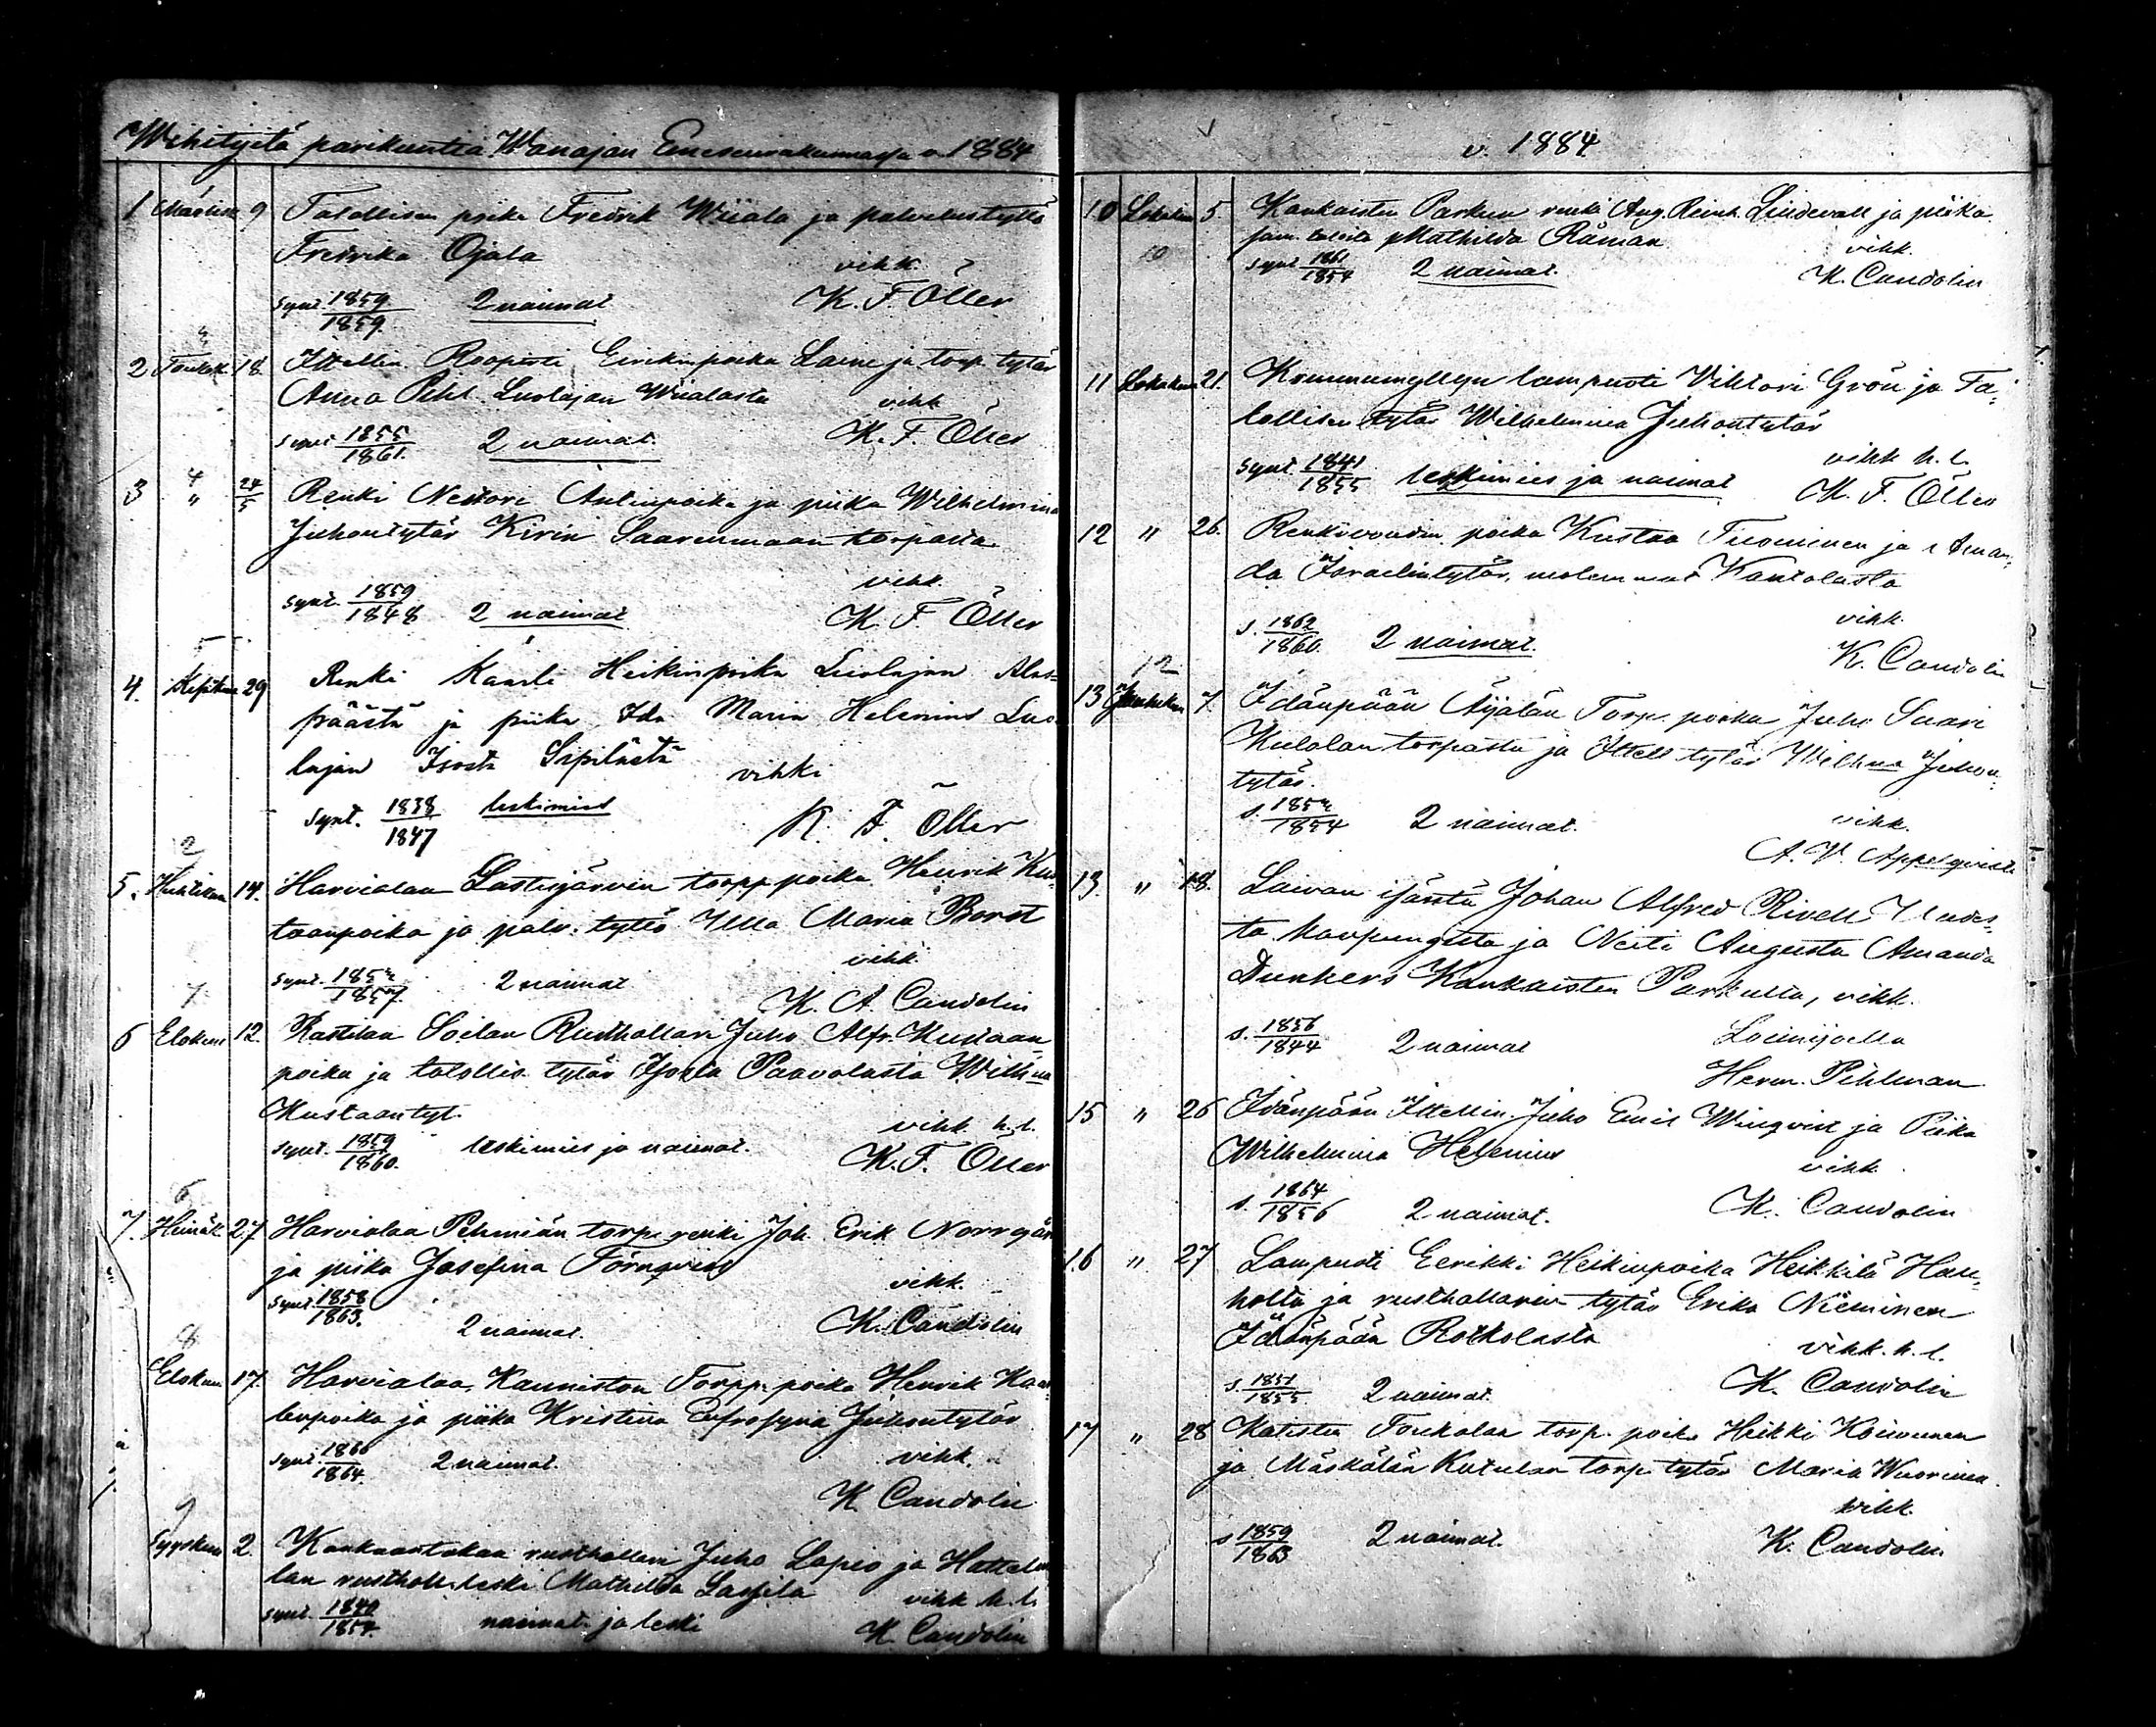 Wihityitä parikuntia Wanajan Emäseurakunnassa v. 1884
1 Maalisk. 9 Talollisen poika Fredrik Wiiala ja palvelustyttö
Fredrika Ojala
vihk.
synt. 1859/1859 2 naimat. K. F. Öller
3
2 Toukok. 18. Ittellin. Roopert Eerikinpoika Laine ja torp. tytär
Anna Pehl. Luolajan Wiialasta
vihk
synt. 1855/1861. 2 naimat. K. F. Öller
4
3 " 24/5 Renki Nestori Antinpoika ja piika Wilhelmina
Juhontytär Kirin Saarenmaan torpasta.
vihk.
synt. 1859/1848 2 naimat K. F. Öller
5
4. Kesäkuu 29 Renki Kaarle Heikinpoika Luolajan Alas=
päästä ja piika Ida Maria Helenius Luo
lajan Isosta Sipilästä
vihki
synt. 1838/1847 leskimies K. F. Öller
2
5. Huhtikuu 14. Harvialan Lastujärvin torpp. poika Henrik Kus
taanpoika ja palv. tyttö Ulla Maria Borst
vihk.
synt. 1857/1857 2 naimat K. A. Candolin
7
6 Elokuu 12. Rastilan Soilan Rusthollari Juho Alfr. Kustaan
poika ja talollis. tytär Isosta Paavolasta Wilh:na
Kustaantyt.
vihk. h. l.
synt. 1859/1860. leskimies ja naimat. K. F. Öller
6
7. Heinäk. 27 Harvialan Pehmiän torp. renki Joh. Erik Norrgår
ja piika Josefina Törnqvist
vihk.
synt. 1858/1863. 2 naimat. K. Candolin
8
Elokuu 17. Harvialan Kanniston Torpp. poika Henrik Kaar
lenpoika ja piika Kristina Eufrosyna Juhontytär
synt. 1866/1864. 2 naimat. vihk.
K. Candolin
9
Syyskuu 2. Kankaantakaa rusthollari Juho Lapio ja Hattelma
lan rusthol. leski Mathilda Lassila vihk. h. l.
synt. 1840/1854. naimat. ja leski K. Candolin
v. 1884
10 Lokakuu 5 Kankaisten Parkun renki Aug. Reinh. Lindevall ja piika
sam. talosta Mathilda Råman
vihk.
10
synt 1861/1854 2 naimat. K. Candolin
11 Lokakuu 21. Kruunumyllyn lampuoti Vihtori Grön ja Ta=
lollisen tytär Wilhelmina Juhontytär
vihk h. l.
synt. 1841/1855 leskimies ja naimat K. F. Öller
12 " 26. Renkivoudin poika Kustaa Tuominen ja Aman=
da Israelintytär, molemmat Kantolasta
vihk.
s. 1862/1860. 2 naimat. K. Candolin
12
13 Jouluku 7. Idänpään Äijälän Torp. poika Juho Saari
Kulolan torpasta ja Ittell tytär Wilh:na Juhon=
tytär.
vihk.
s. 1854/1854 2 naimat. A. V. Appelqvist
13. " 18. Laivan isäntä Johan Alfred Rivell Uudes=
ta kaupungista ja Neiti Augusta Amanda
Dunkers Kankaisten Parkulta, vihk.
s. 1856/1844 2 naimat Loimijoella
Herm. Pihlman
15 " 26 Idänpään Ittellin Juho Emil Winqvist ja Piika
Wilhelmina Helenius
vihk
s. 1864/1856 2 naimat. K. Candolin
16 " 27 Lampuoti Eerikki Heikinpoika Heikkilä Hau=
holta ja rusthollarin tytär Erika Nieminen
Idänpään Rotkolasta
vihk. h. l.
s. 1851/1855. 2 naimat. K. Candolin
17 " 28 Katisten Toukolan torp. poika Heikki Koivunen
ja Mäskälän Katulan torp. tytär Maria Wuorinen.
vihk.
s 1859/1863 2 naimat. K. Candolin